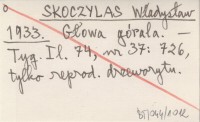 SKOCZYLAS Władysław
1933. Głowa górala. —
Tyg. Il. 74, nr 37: 726,
tylko reprod. drzeworytu.